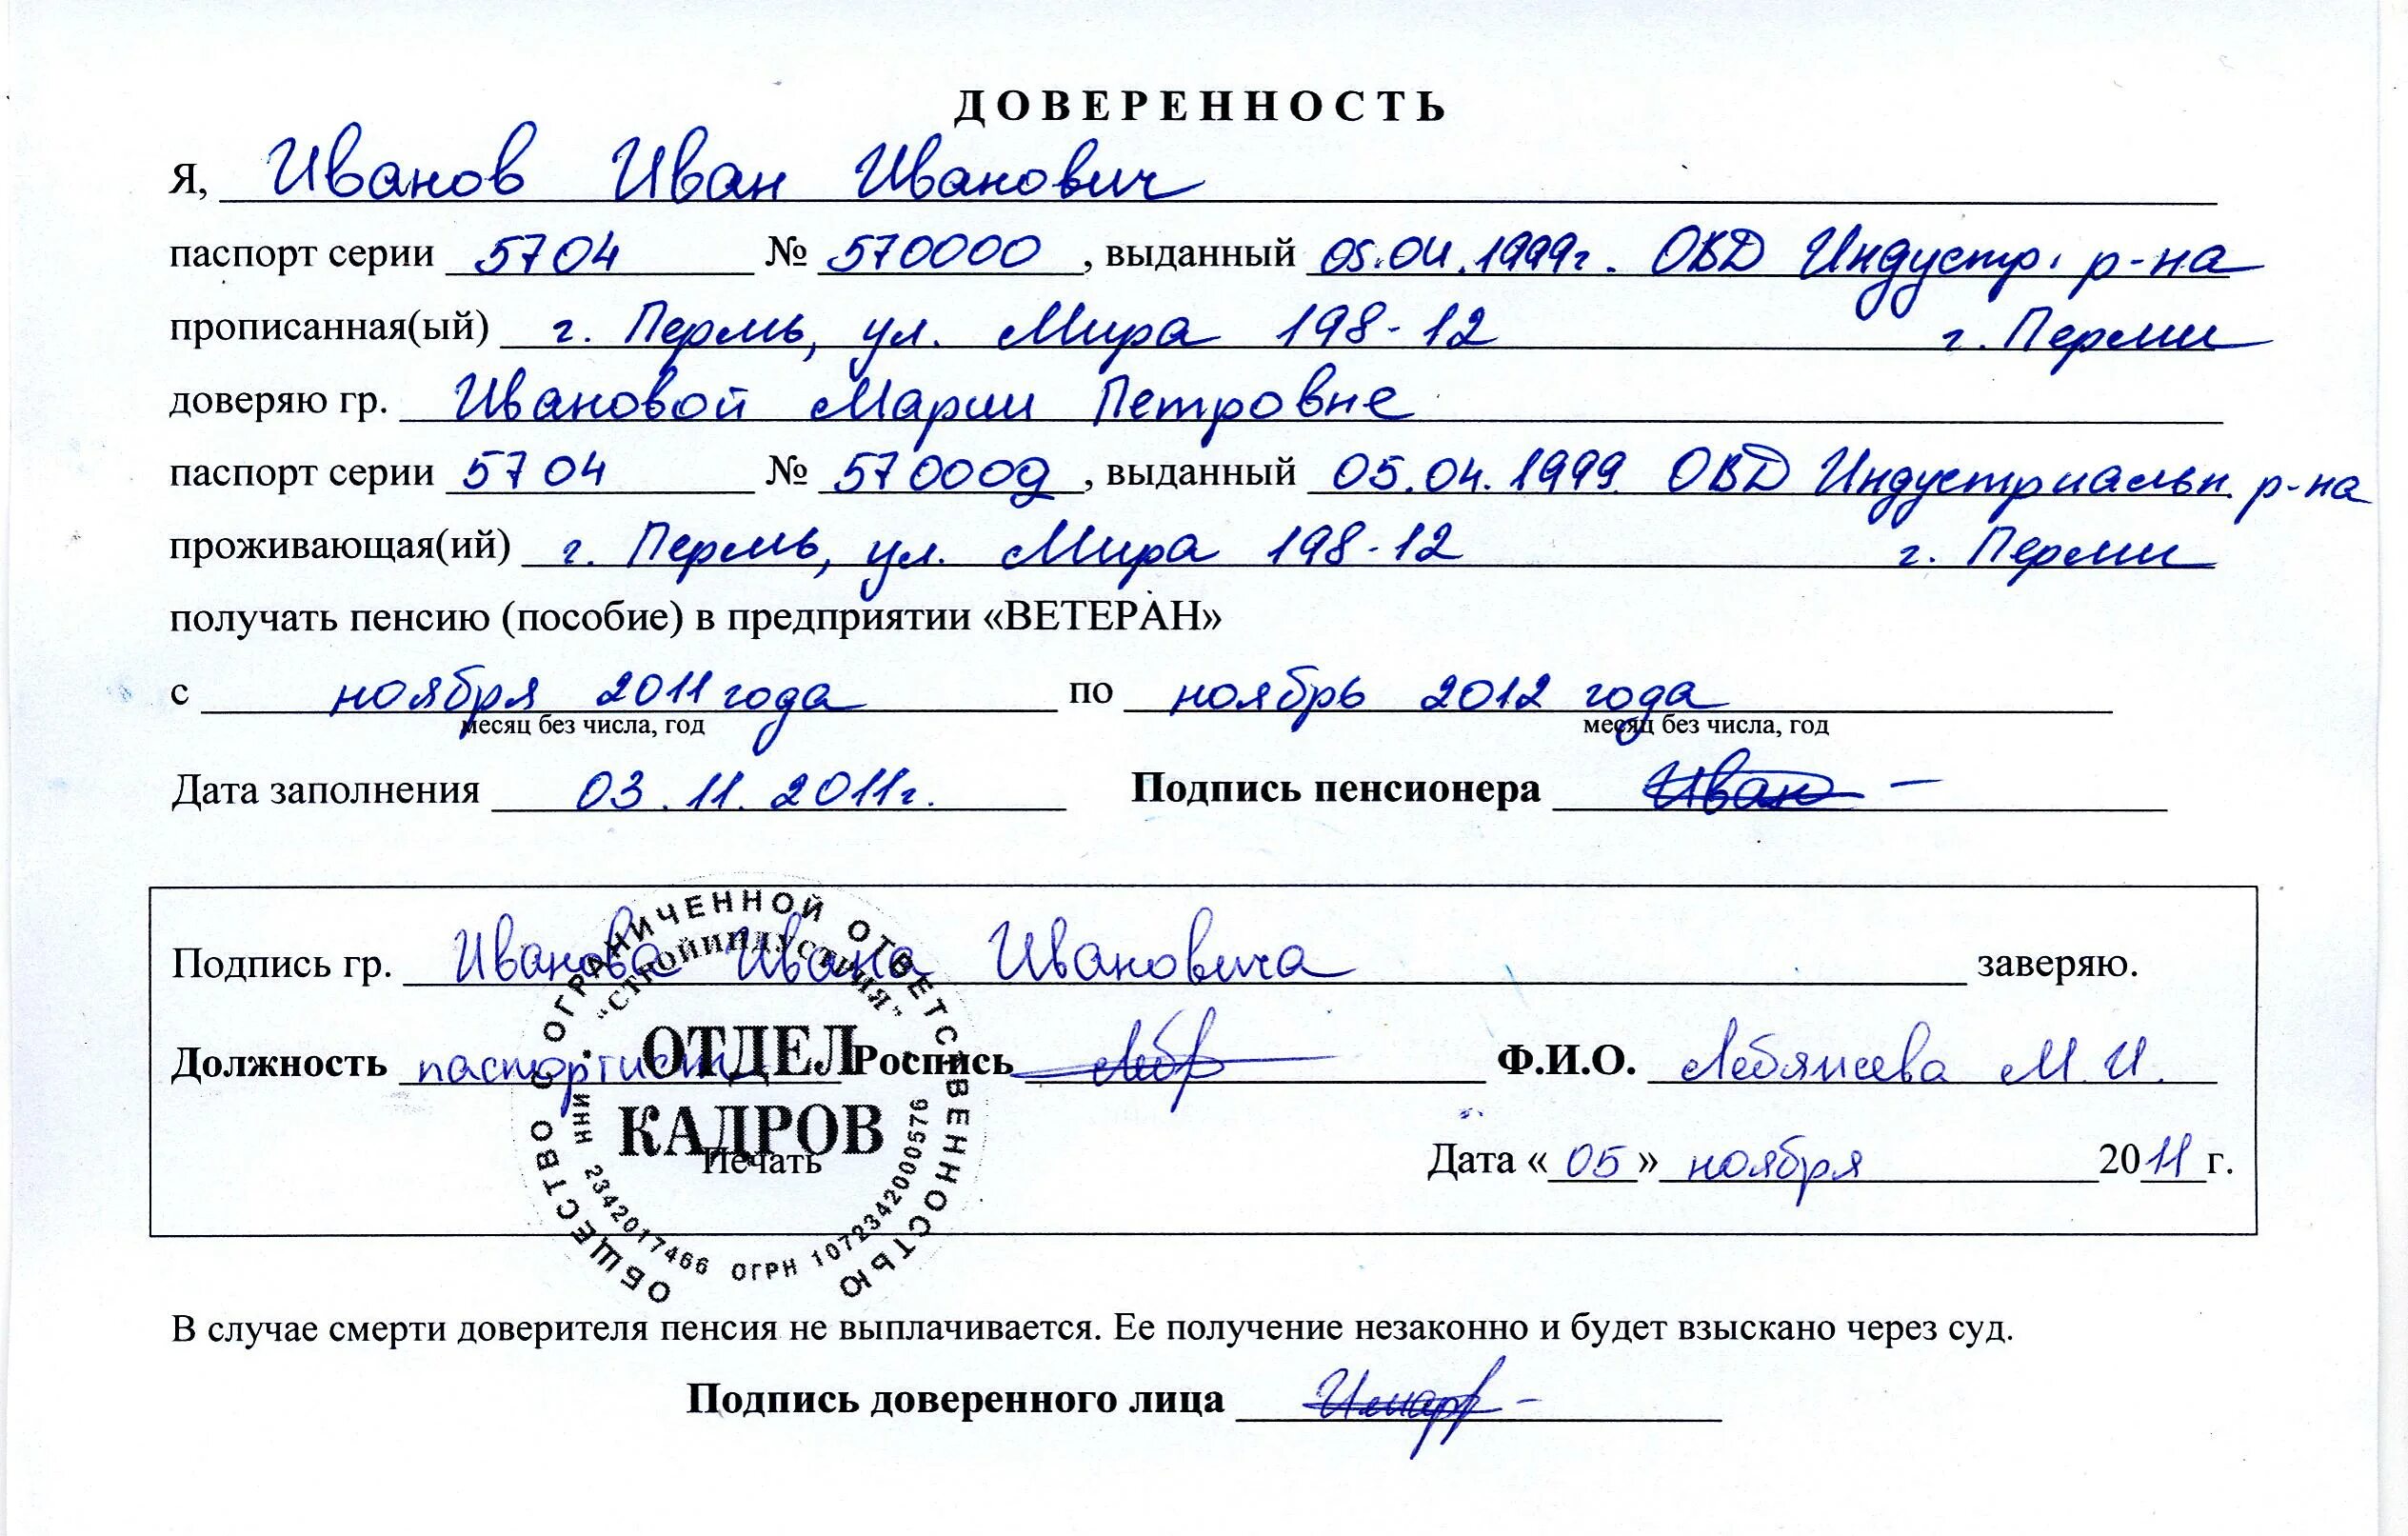 ДОВЕРЕННОСТЬ
Я, Иванов Иван Иванович
паспорт серии 5704 № 570000, выданный 05.04.1999г. ОВД Индустр. р-на
прописанная(ый) г. Пермь, ул. Мира 198-12 г. Перми
доверяю гр. Ивановой Марии Петровне
паспорт серии 5704 № 570000, выданный 05.04.1999 ОВД Индустриальн. р-на
проживающая(ий) г. Пермь, ул. Мира 198-12 г. Перми
получать пенсию (пособие) в предприятии «ВЕТЕРАН»
с ноября 2011 года по ноябрь 2012 года
месяц без числа, год месяц без числа, год
Дата заполнения 03.11.2011г. Подпись пенсионера Иван
Подпись гр. Иванова Ивана Ивановича заверяю.
Должность паспортист Роспись Ф.И.О. М.И.
Печать Дата «05» ноября 2011 г.
ОБЩЕСТВО С ОГРАНИЧЕННОЙ ОТВЕТСТВЕННОСТЬЮ
"СТРОЙИНДУСТРИЯ"
ОТДЕЛ
КАДРОВ
ИНН 2342017466 ОГРН 1072342000576
В случае смерти доверителя пенсия не выплачивается. Ее получение незаконно и будет взыскано через суд.
Подпись доверенного лица